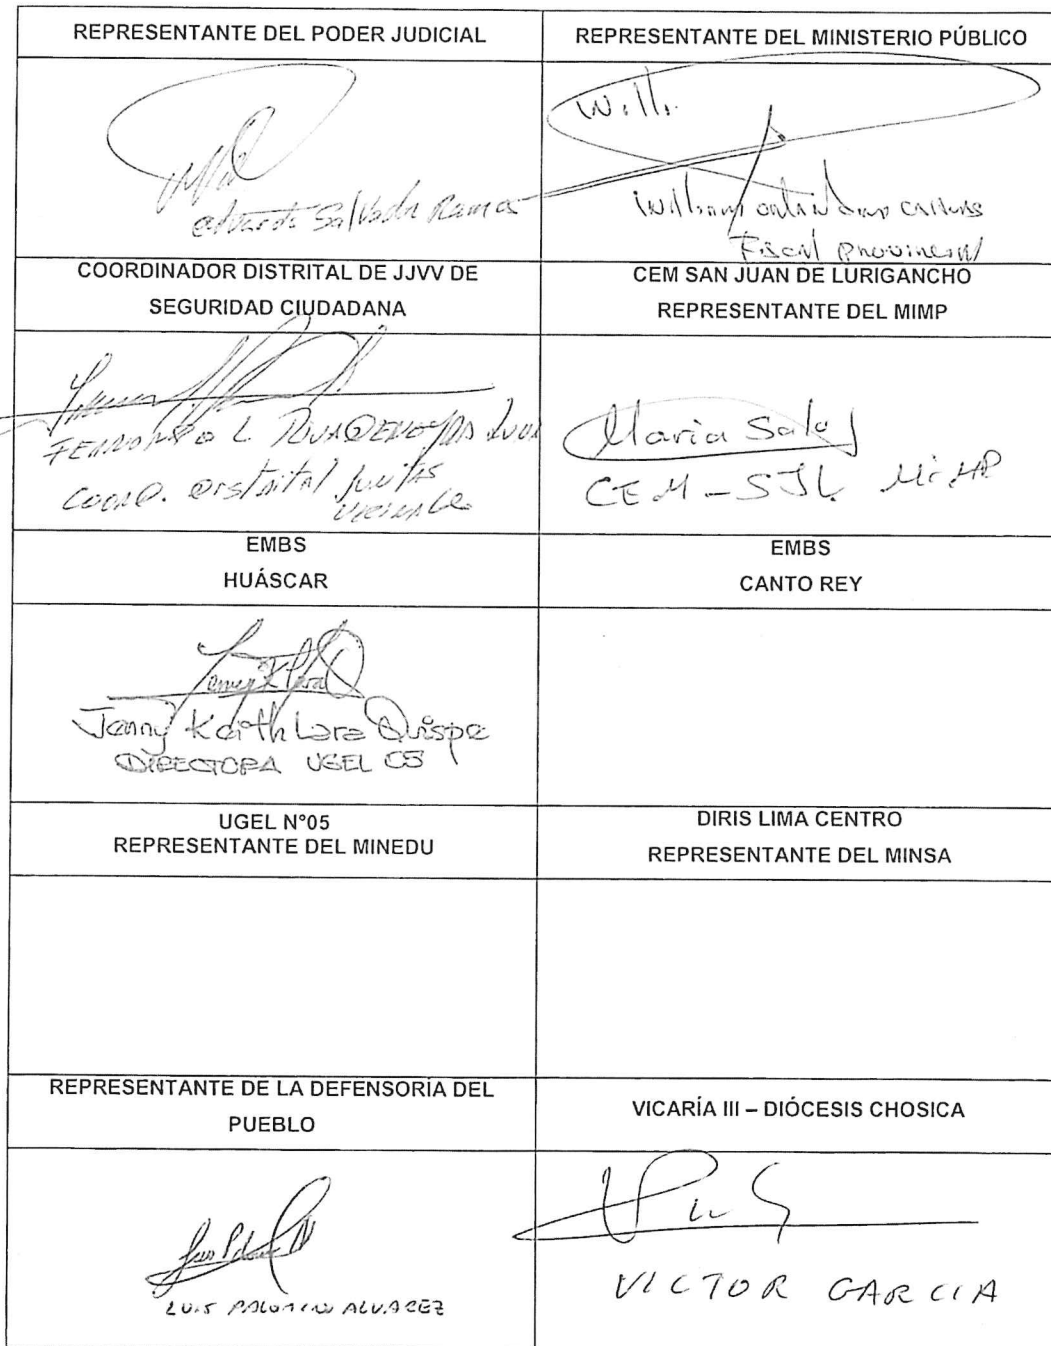 REPRESENTANTE DEL PODER JUDICIAL
REPRESENTANTE DEL MINISTERIO PÚBLICO
Eduardo Salvador Ramos
Willi
William
Fiscal Provincial
COORDINADOR DISTRITAL DE JJVV DE
SEGURIDAD CIUDADANA
CEM SAN JUAN DE LURIGANCHO
REPRESENTANTE DEL MIMP
FERNANDO L.
COORD. DISTRITAL JUNTAS
VECINALES
Maria Sala
CEM - SJL MIMP
EMBS
HUÁSCAR
EMBS
CANTO REY
Jenny Keith Lara Quispe
DIRECTORA UGEL 05
UGEL N°05
REPRESENTANTE DEL MINEDU
DIRIS LIMA CENTRO
REPRESENTANTE DEL MINSA
REPRESENTANTE DE LA DEFENSORÍA DEL
PUEBLO
VICARÍA III – DIÓCESIS CHOSICA
LUIS PALOMINO ALVAREZ
VICTOR GARCIA